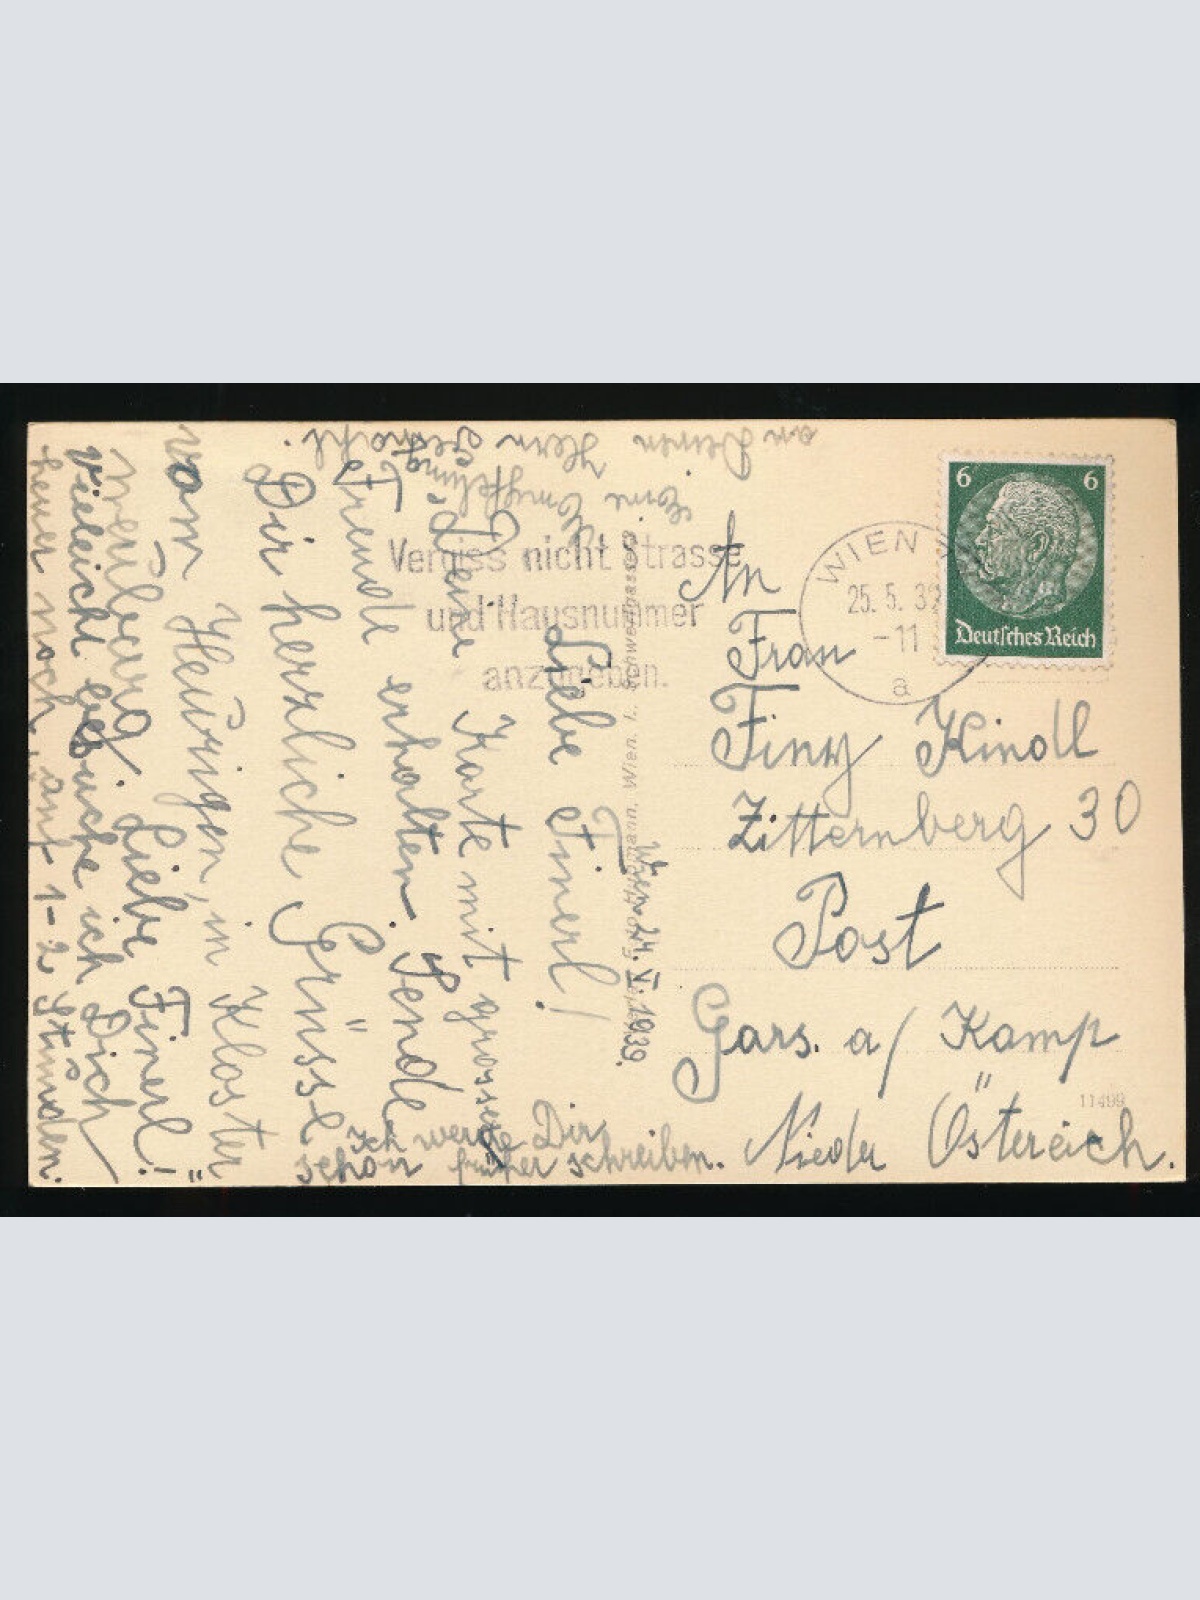 Wien 24. V. 1939.
Liebe Finerl!
Deine Karte mit grosser
Freude erhalten. Sende
Dir herzliche Grüsse
vom Heurigen, in Kloster
neuburg. Liebe Finerl!
Vieleicht besuche ich Dich
heuer noch, auf 1-2 Stunden.
Ich werde Dir
schon früher schreiben.
Eine Empfehlung
an Deinen Herrn Gemahl.
Vergiss nicht Strasse
und Hausnummer
anzugeben.
WIEN
25. 5. 39
-11
a
6 6
Deutsches Reich
An
Frau
Finy Kindl
Zitternberg 30
Post
Gars. a/ Kamp
Nieder Östereich.
11499